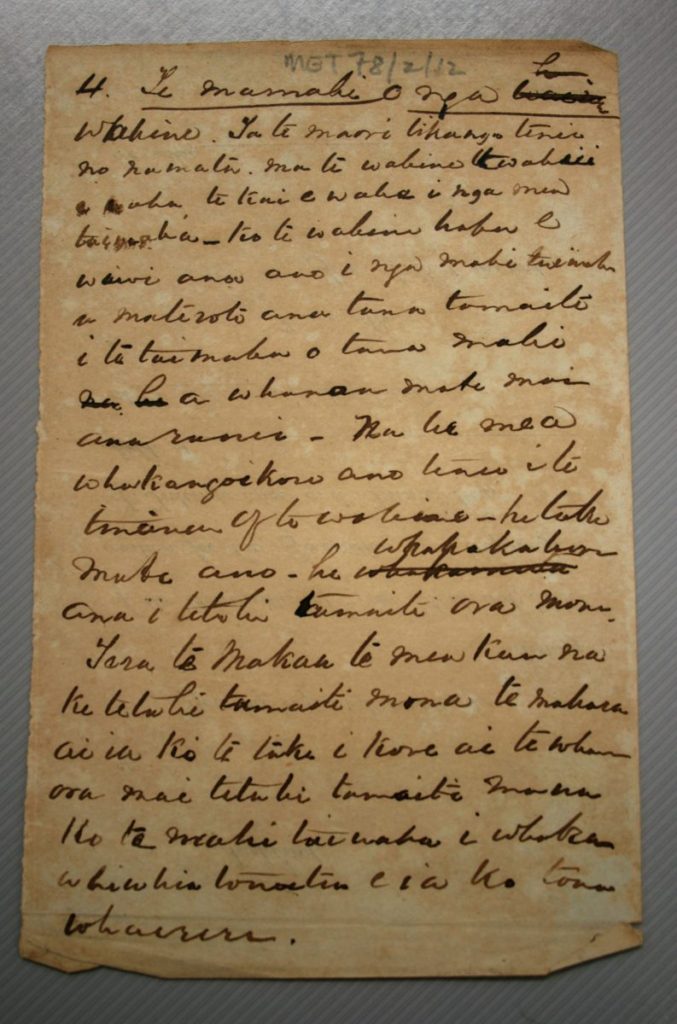 MET 78/2/12
4. Te mamahi o nga h
Wahine. Ta te maori tikanga tenei
no namata. ma te wahine e wahi
waha te kai e waha i nga mea
taimaha - Ko te wahine hapu e
wiwi ana ano i nga mahi taimaha
a materoto ana tana tamaiti
i te taimaha o tana mahi
a whanau mate mai
ana ranei - Na he mea
whakangoikore ano tenei i te
tinana o te wahine - he take
mate ano - he whakakahore
ana i tetahi tamaiti ora mona.
Tera te Makaa te mea kau na
ke tetahi tamaiti mona te mahara
ai ia ko te take i kore ai te whan
ora mai tetahi tamaiti mona
Ko te mahi taimaha i whaka
whiwhia tonutia e ia ko tona
whaereere.